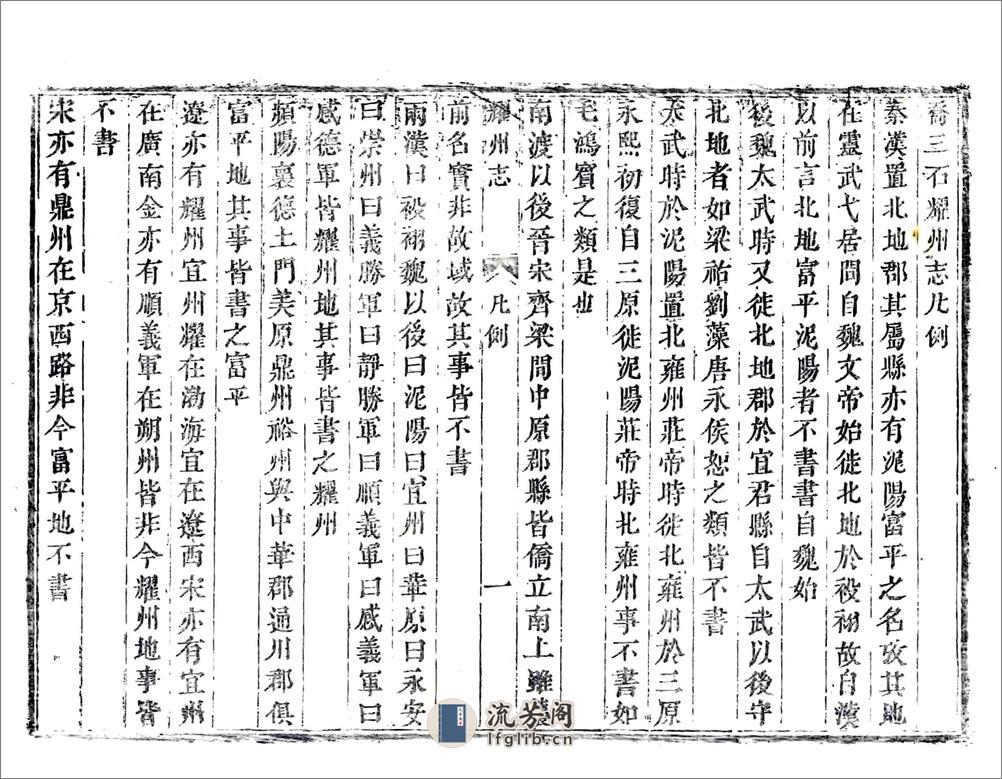 喬三石耀州志凡例
秦漢置北地郡其屬縣亦有泥陽富平之名攷其地
在靈武弋居間自魏文帝始徙北地於祋祤故自漢
以前言北地富平泥陽者不書書自魏始
後魏太武時又徙北地郡於宜君縣自太武以後守
北地者如梁祐劉藻唐永侯恕之類皆不書
太武時於泥陽置北雍州莊帝時徙北雍州於三原
永熙初復自三原徙泥陽莊帝時北雍州事不書如
毛鴻賓之類是也
南渡以後晉宋齊梁間中原郡縣皆僑立南土雖
耀州志 凡例 一
前名實非故域故其事皆不書
兩漢曰祋祤魏以後曰泥陽曰宜州曰華原曰永安
曰崇州曰義勝軍曰靜勝軍曰順義軍曰感義軍曰
感德軍皆耀州地其事皆書之耀州
頻陽襄德土門美原鼎州裕州與中華郡通川郡俱
富平地其事皆書之富平
遼亦有耀州宜州耀在渤海宜在遼西宋亦有宜州
在廣南金亦有順義軍在朔州皆非今耀州地事皆
不書
宋亦有鼎州在京西路非今富平地不書
流芳阁
lfglib.cn